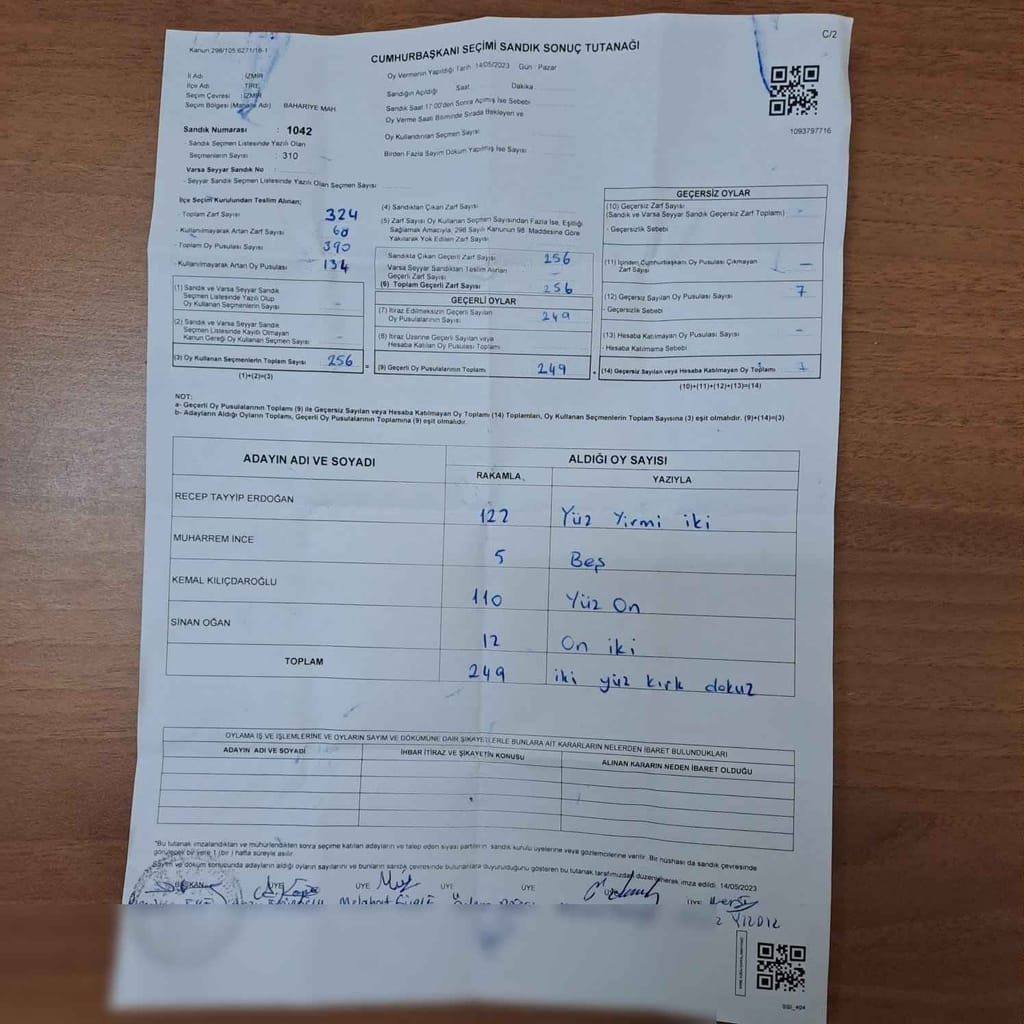 C/2
Kanun 298/105 6271/18-1
CUMHURBAŞKANI SEÇİMİ SANDIK SONUÇ TUTANAĞI
Oy Vermenin Yapıldığı Tarih :14/05/2023 Gün : Pazar
İl Adı : İZMİR
İlçe Adı : TİRE
Seçim Çevresi : İZMİR
Seçim Bölgesi (Mahalle Adı) BAHARİYE MAH
Sandığın Açıldığı Saat Dakika
Sandık Saat 17:00'den Sonra Açılmış İse Sebebi
Oy Verme Saati Bitiminde Sırada Bekleyen ve
Oy Kullandırılan Seçmen Sayısı
Birden Fazla Sayım Döküm Yapılmış İse Sayısı
1093797716
Sandık Numarası : 1042
- Sandık Seçmen Listesinde Yazılı Olan
Seçmenlerin Sayısı : 310
Varsa Seyyar Sandık No :
- Seyyar Sandık Seçmen Listesinde Yazılı Olan Seçmen Sayısı
İlçe Seçim Kurulundan Teslim Alınan;
- Toplam Zarf Sayısı 324
- Kullanılmayarak Artan Zarf Sayısı 68
- Toplam Oy Pusulası Sayısı 390
- Kullanılmayarak Artan Oy Pusulası 134
(1) Sandık ve Varsa Seyyar Sandık
Seçmen Listesinde Yazılı Olup
Oy Kullanan Seçmenlerin Sayısı -
(2) Sandık ve Varsa Seyyar Sandık
Seçmen Listesinde Kayıtlı Olmayan
Kanun Gereği Oy Kullanan Seçmen Sayısı -
(3) Oy Kullanan Seçmenlerin Toplam Sayısı 256
(1)+(2)=(3)
(4) Sandıktan Çıkan Zarf Sayısı
(5) Zarf Sayısı Oy Kullanan Seçmen Sayısından Fazla İse, Eşitliği
Sağlamak Amacıyla, 298 Sayılı Kanunun 98. Maddesine Göre
Yakılarak Yok Edilen Zarf Sayısı
Sandıkta Çıkan Geçerli Zarf Sayısı 256
Varsa Seyyar Sandıktan Teslim Alınan
Geçerli Zarf Sayısı -
(6) Toplam Geçerli Zarf Sayısı 256
GEÇERLİ OYLAR
(7) İtiraz Edilmeksizin Geçerli Sayılan
Oy Pusulalarının Sayısı 249
(8) İtiraz Üzerine Geçerli Sayılan veya
Hesaba Katılan Oy Pusulası Toplamı
= (9) Geçerli Oy Pusulalarının Toplamı 249
GEÇERSİZ OYLAR
(10) Geçersiz Zarf Sayısı
(Sandık ve Varsa Seyyar Sandık Geçersiz Zarf Toplamı) -
- Geçersizlik Sebebi
(11) İçinden Cumhurbaşkanı Oy Pusulası Çıkmayan
Zarf Sayısı —
(12) Geçersiz Sayılan Oy Pusulası Sayısı 7
- Geçersizlik Sebebi
(13) Hesaba Katılmayan Oy Pusulası Sayısı -
- Hesaba Katılmama Sebebi
+ (14) Geçersiz Sayılan veya Hesaba Katılmayan Oy Toplamı 7
(10)+(11)+(12)+(13)=(14)
NOT:
a- Geçerli Oy Pusulalarının Toplamı (9) ile Geçersiz Sayılan veya Hesaba Katılmayan Oy Toplamı (14) Toplamları, Oy Kullanan Seçmenlerin Toplam Sayısına (3) eşit olmalıdır. (9)+(14)=(3)
b- Adayların Aldığı Oyların Toplamı, Geçerli Oy Pusulalarının Toplamına (9) eşit olmalıdır.
ADAYIN ADI VE SOYADI ALDIĞI OY SAYISI
RAKAMLA YAZIYLA
RECEP TAYYİP ERDOĞAN 122 Yüz Yirmi iki
MUHARREM İNCE 5 Beş
KEMAL KILIÇDAROĞLU 110 Yüz On
SİNAN OĞAN 12 On iki
TOPLAM 249 iki yüz kırk dokuz
OYLAMA İŞ VE İŞLEMLERİNE VE OYLARIN SAYIM VE DÖKÜMÜNE DAİR ŞİKAYETLERLE BUNLARA AİT KARARLARIN NELERDEN İBARET BULUNDUKLARI
ADAYIN ADI VE SOYADI İHBAR İTİRAZ VE ŞİKAYETİN KONUSU ALINAN KARARIN NEDEN İBARET OLDUĞU
*Bu tutanak imzalandıktan ve mühürlendikten sonra seçime katılan adayların ve talep eden siyasi partilerin sandık kurulu üyelerine veya gözlemcilerine verilir. Bir nüshası da sandık çevresinde
görülecek bir yere 1 (bir) hafta süreyle asılır.
Sayım ve döküm sonucunda adayların aldığı oyların sayılarını ve bunların sandık çevresinde bulunanlara duyurulduğunu gösteren bu tutanak tarafımızdan düzenlenerek imza edildi. 14/05/2023
BAŞKAN ÜYE ÜYE ÜYE ÜYE ÜYE ÜYE